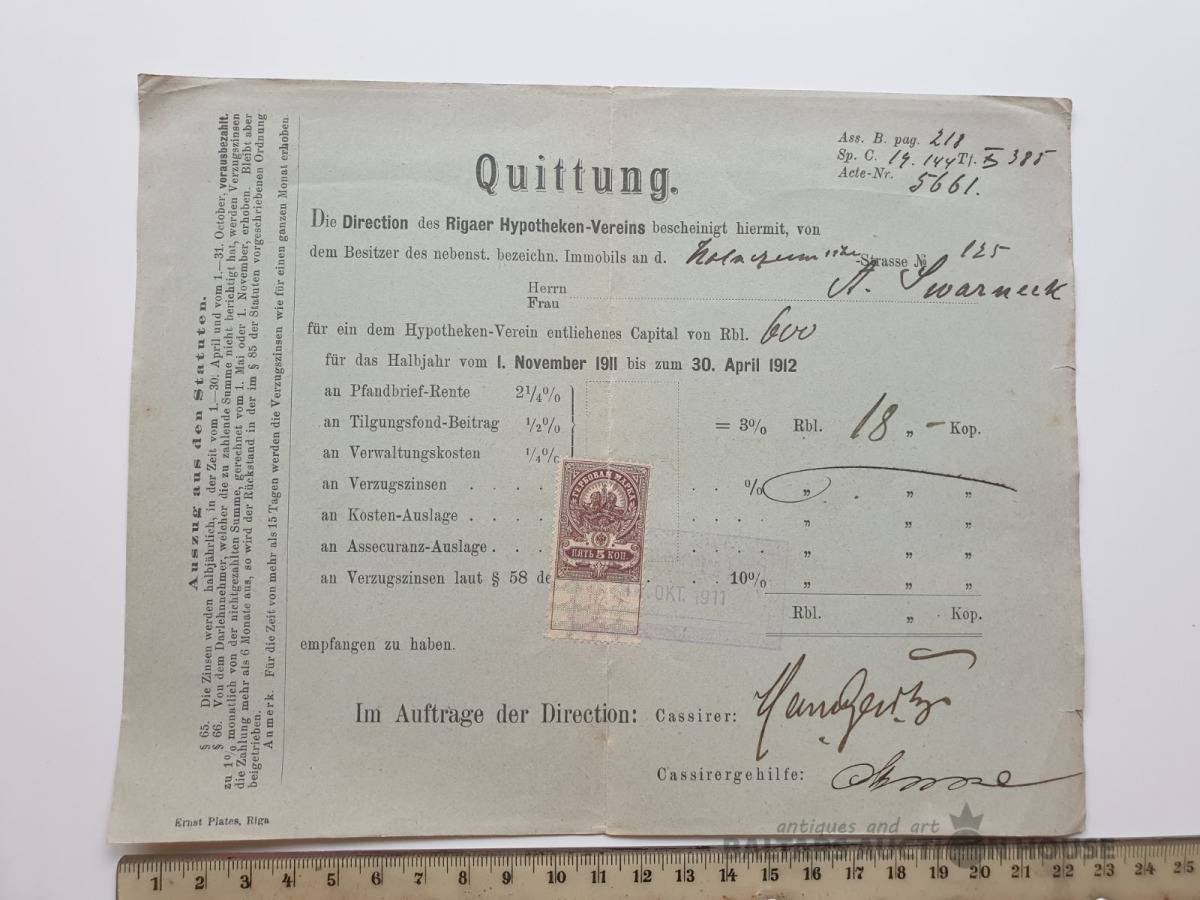 Ass. B. pag. 218
Sp. C. 19. 144 Tl. 385
Acte-Nr. 5661.
Quittung.
Die Direction des Rigaer Hypotheken-Vereins bescheinigt hiermit, von
dem Besitzer des nebenst. bezeichn. Immobils an d. -Strasse № 125
Herrn
Frau
A. Swarneck
für ein dem Hypotheken-Verein entliehenes Capital von Rbl. 600
für das Halbjahr vom 1. November 1911 bis zum 30. April 1912
an Pfandbrief-Rente 2¼%
an Tilgungsfond-Beitrag ½% = 3% Rbl. 18 „ – Kop.
an Verwaltungskosten ¼%
an Verzugszinsen . . . . . % „ „ „
an Kosten-Auslage . . . . . „ „ „
an Assecuranz-Auslage . . . . . „ „ „
an Verzugszinsen laut § 58 de . . . 10% „ „ „
Rbl. „ Kop.
empfangen zu haben.
ГЕРБОВАЯ МАРКА
ПЯТЬ 5 КОП.
ОКТ. 1911
Im Auftrage der Direction: Cassirer:
Cassirergehilfe:
Auszug aus den Statuten.
§ 65. Die Zinsen werden halbjährlich, in der Zeit vom 1.—30. April und vom 1.—31. October, vorausbezahlt.
§ 66. Von dem Darlehnnehmer, welcher die zu zahlende Summe nicht berichtigt hat, werden Verzugszinsen
zu 1% monatlich von der nichtgezahlten Summe, gerechnet vom 1. Mai oder 1. November, erhoben. Bleibt aber
die Zahlung mehr als 6 Monate aus, so wird der Rückstand in der im § 85 der Statuten vorgeschriebenen Ordnung
beigetrieben.
Anmerk. Für die Zeit von mehr als 15 Tagen werden die Verzugszinsen wie für einen ganzen Monat erhoben.
Ernst Plates, Riga
antiques and art
BALTARS AUCTION HOUSE
1 2 3 4 5 6 7 8 9 10 11 12 13 14 15 16 17 18 19 20 21 22 23 24 25